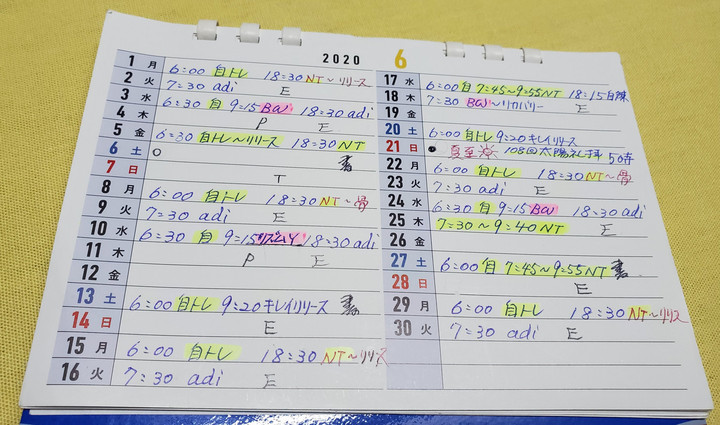 2020 6
1 月 6:00 自トレ 18:30 NT~リリース
2 火 7:30 adi E
3 水 6:30 自 9:15 18:30 adi
4 木 P E
5 金 6:30 自トレ~リリース 18:30 NT
6 土
7 日 T
8 月 6:00 自トレ 18:30 NT~骨
9 火 7:30 adi E
10 水 6:30 自 9:15 リズムY 18:30 adi
11 木 P E
12 金
13 土 6:00 自トレ 9:20 キレイリリース
14 日 E
15 月 6:00 自トレ 18:30 NT~リリス
16 火 7:30 adi E
17 水 6:00 自 7:45~9:55 NT 18:15 自練
18 木 7:30 ~リカバリー E
19 金
20 土 6:00 自トレ 9:20 キレイリリース
21 日 ● 夏至 108回太陽礼拝 50寺
22 月 6:00 自トレ 18:30 NT~骨
23 火 7:30 adi E
24 水 6:30 自 9:15 18:30 adi
25 木 7:30~9:40 NT E
26 金
27 土 6:00 自 7:45~9:55 NT
28 日 E
29 月 6:00 自トレ 18:30 NT~リリス
30 火 7:30 adi E